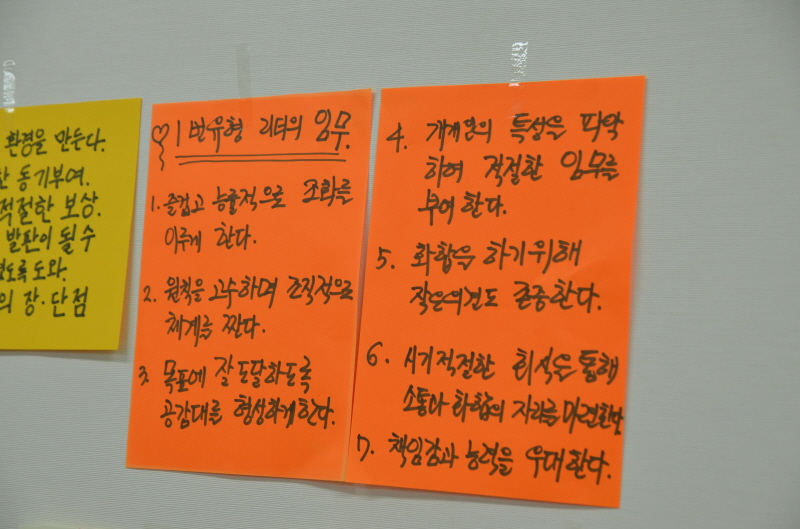 환경을 만든다.
동기부여.
적절한 보상.
발판이 될 수
있도록 도와.
의 장·단점
1번유형 리더의 임무.
1. 즐겁고 능률적으로 조화를
이루게 한다.
2. 원칙을 고수하며 조직적으로
체계를 짠다.
3. 목표에 잘 도달하도록
공감대를 형성하게한다.
4. 개개인의 특성을 파악
하여 적절한 임무를
부여 한다.
5. 화합을 하기위해
작은의견도 존중한다.
6. 시기적절한 회식을 통해
소통과 화합의 자리를 마련한다
7. 책임감과 능력을 우대한다.